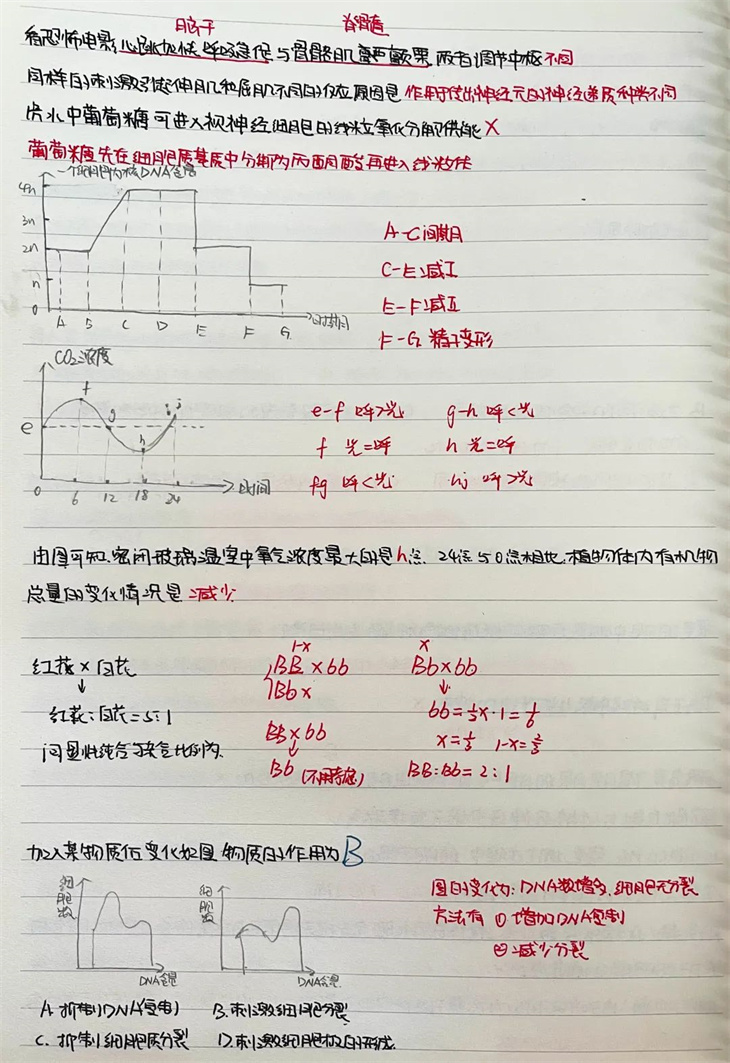 脑干 脊髓
看恐怖电影,心跳加快呼吸急促与骨骼肌颤栗,两者调节中枢不同
同样的刺激引起伸肌和屈肌不同的效应原因是 作用于传出神经元的神经递质种类不同
片水中葡萄糖可进入视神经细胞的线粒氧化分解供能 X
葡萄糖先在细胞质基质中分解为丙酮酸再进入线粒体
一个细胞内核DNA含量
4n
3n
2n
n
0
A B C D E F G 时期
A-C 间期
C-E 减Ⅰ
E-F 减Ⅱ
F-G 精子变形
CO₂浓度
f
e g j
h
0 6 12 18 24 时间
e-f 呼>光 g-h 呼<光
f 光=呼 h 光=呼
fg 呼<光 hj 呼>光
由图可知,密闭玻璃温室中氧气浓度最大的是h点. 24点与0点相比,植物体内有机物
总量的变化情况是 减少
1-x x
红花×白花 BB×bb Bb×bb
↓ Bb× ↓
红花:白花=5:1 bb=½x·1=1/6
BB×bb x=1/3 1-x=2/3
问显性纯合与杂合比例为. ↓
Bb (不用考虑) BB:Bb=2:1
加入某物质后变化如图,物质的作用为B
细胞数 DNA含量
细胞数 DNA含量
图的变化为: DNA数增多,细胞无分裂
方法有 ① 增加DNA复制
② 减少分裂
A. 抑制DNA复制 B. 刺激细胞分裂
C. 抑制细胞质分裂 D. 刺激细胞板的形成.